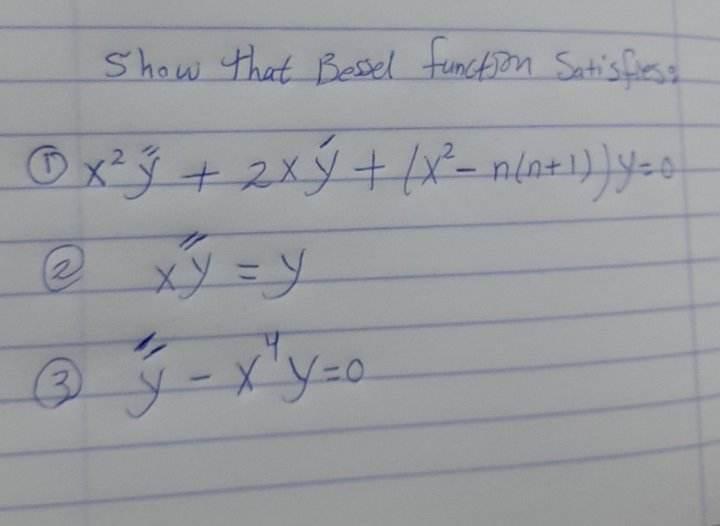 Show that Bessel function Satisfies:
① x² y'' + 2x y' + (x² - n(n+1)) y = 0
② x y'' = y
③ y'' - x⁴ y = 0